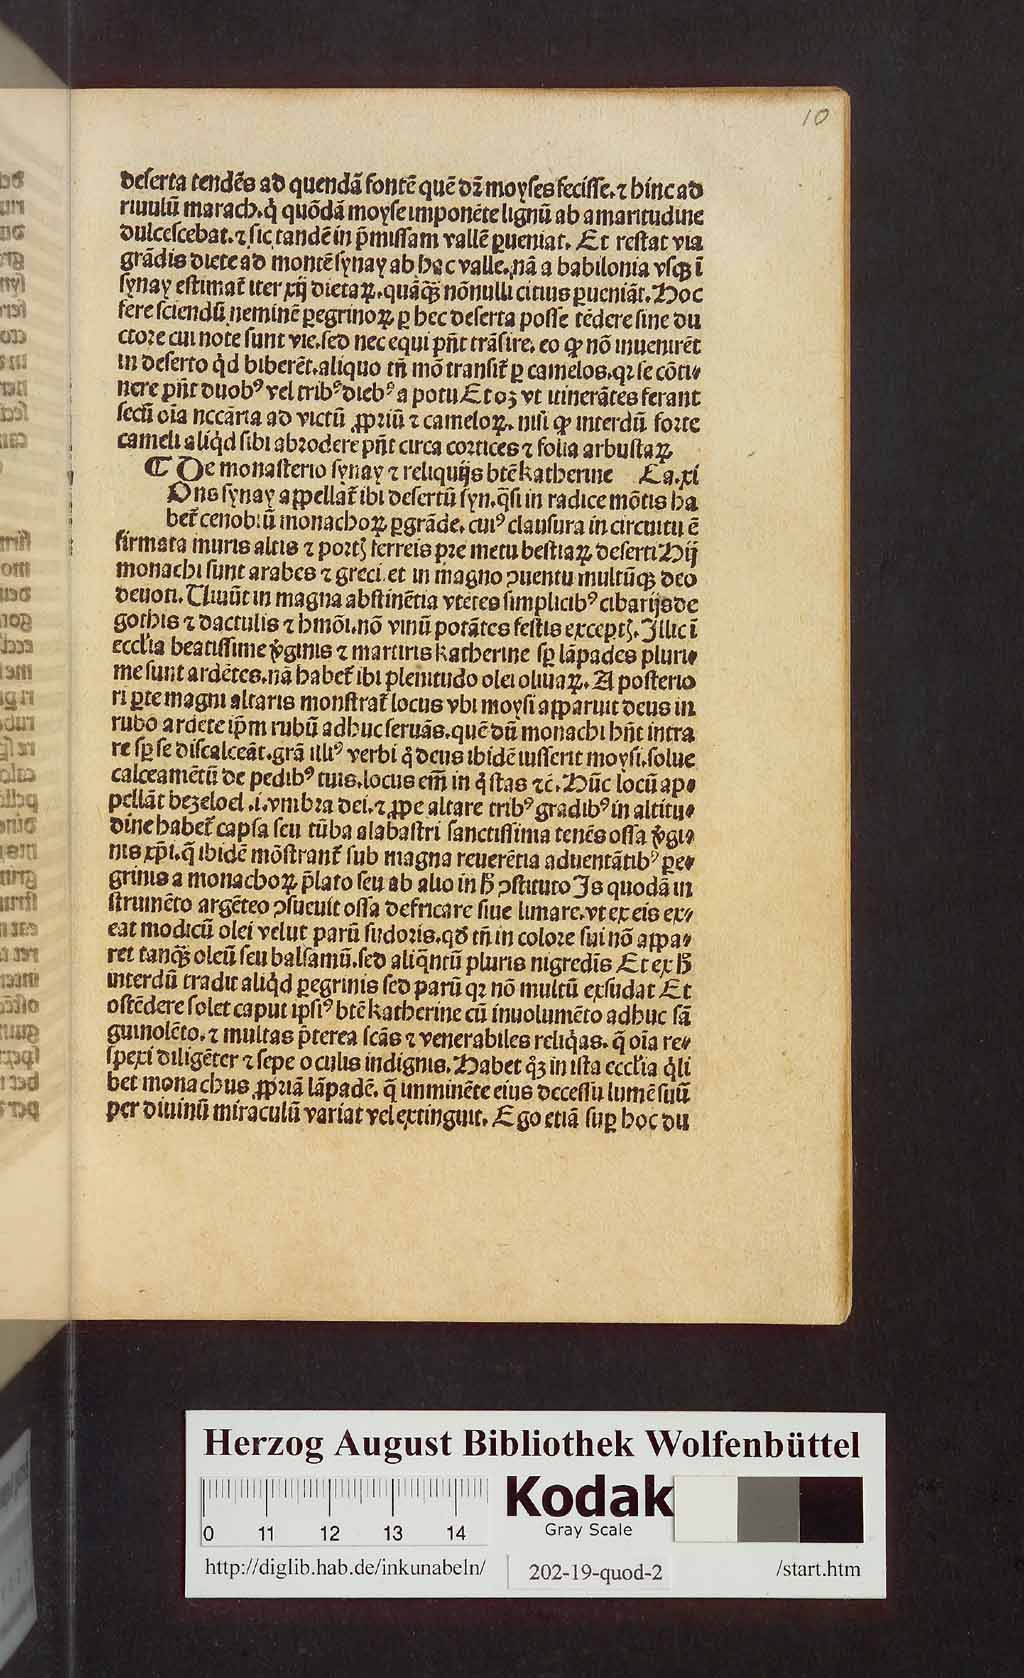 10
deserta tendēs ad quendā fontē quē dz̄ moyses fecisse. ⁊ hinc ad
riuulū marach. q̇ quōdā moyse imponēte lignū ab amaritudine
dulcescebat. ⁊ sic tandē in p̄missam vallē ꝑueniat. Et restat via
grādis diete ad montē synay ab hac valle. nā a babilonia vsqꝫ ī
synay estimat᷑ iter xij dietaꝝ. quāqꝫ̄ nōnulli citius ꝑueniāt. Hoc
fere sciendū neminē ꝑegrinoꝝ ꝑ hec deserta posse tēdere sine du
ctore cui note sunt vie. sed nec equi pn̄t trāsire. eo ꝙ nō inuenirēt
in deserto qͥd biberēt. aliquo tn̄ mō transit᷑ ꝑ camelos. qꝛ se cōti⸗
nere pn̄t duobꝰ vel tribꝰ diebꝰ a potu Et oꝫ vt itinerātes ferant
secū oīa nccāria ad victū ꝓpriū ⁊ cameloꝝ. nisi ꝙ interdū forte
cameli aliqͥd sibi abrodere pn̄t circa cortices ⁊ folia arbustaꝝ
¶ De monasterio synay ⁊ reliquijs btē katherine Ca. xi
Ons synay appellat᷑ ibi desertū syn. q̄si in radice mōtis ha
bet᷑ cenobiū monachoꝝ ꝑgrāde. cuiꝰ clausura in circuitu ē
firmata muris altis ⁊ portꝭ ferreis pre metu bestiaꝝ deserti Hij
monachi sunt arabes ⁊ greci. et in magno ꝯuentu multūqꝫ deo
deuoti. Uiuūt in magna abstinētia vtētes simplicibꝰ cibarijs de
gothis ⁊ dactulis ⁊ hmōi. nō vinū potātes festis exceptꝭ. Illic ī
eccl̄ia beatissime v̇ginis ⁊ martiris katherine sꝑ lāpades pluri⸗
me sunt ardētes. nā habet᷑ ibi plenitudo olei oliuaꝝ. A posterio
ri ꝑte magni altaris monstrat᷑ locus vbi moysi apparuit deus in
rubo ardēte ip̄m rubū adhuc seruās. quē dū monachi hn̄t intra
re sꝑ se discalceāt. grā illiꝰ verbi q̇ deus ibidē iusserit moysi. solue
calceamētū de pedibꝰ tuis. locus em̄ in q̇ stas ⁊c̄. Hūc locū ap⸗
pellāt bezeloel .i. vmbra dei. ⁊ ꝓpe altare tribꝰ gradibꝰ in altitu⸗
dine habet᷑ capsa seu tūba alabastri sanctissima tenēs ossa v̇gi⸗
nis xp̄i. q̄ ibidē mōstrant᷑ sub magna reuerētia aduentātibꝰ ꝑe⸗
grinis a monachoꝝ p̄lato seu ab alio in ħ ꝯstituto Is quodā in
strumēto argēteo ꝯsueuit ossa defricare siue limare. vt ex eis ex⸗
eat modicū olei velut parū sudoris. qd̄ tn̄ in colore sui nō appa⸗
ret tanqꝫ̄ oleū seu balsamū. sed aliq̄ntū pluris nigredīs Et ex ħ
interdū tradit aliqͥd ꝑegrinis sed parū qꝛ nō multū exsudat Et
ostēdere solet caput ipsiꝰ btē katherine cū inuolumēto adhuc sā
guinolēto. ⁊ multas p̄terea scās ⁊ venerabiles reliqͥas. q̄ oīa re⸗
spexi diligēter ⁊ sepe oculis indignis. Habet qͦꝫ in ista eccl̄ia qͥli
bet monachus ꝓpriā lāpadē. q̄ imminēte eius decessu lumē suū
per diuinū miraculū variat vel extinguit. Ego etiā suꝑ hoc du
Herzog August Bibliothek Wolfenbüttel
0 11 12 13 14
Kodak
Gray Scale
http://diglib.hab.de/inkunabeln/ 202-19-quod-2 /start.htm